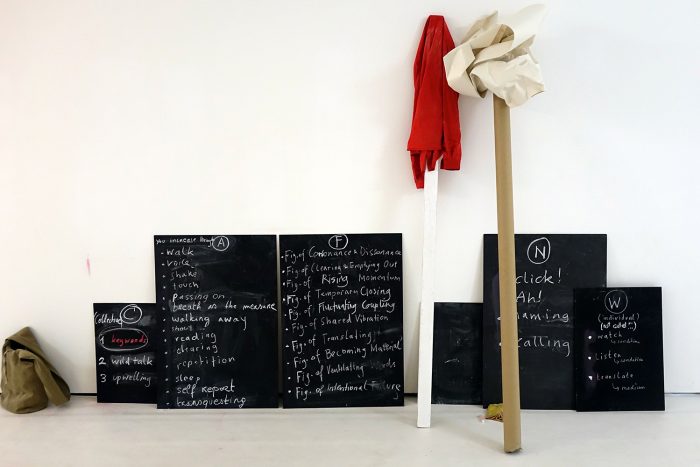 Collective C
1 keywords
2 wild talk
3 upwelling
A
- walk
- voice
- shake
- touch
- passing on
- breath as the measure
- walking away
- shout
- reading
- clearing
- repetition
- sleep
- self report
- transquesting
F
- Fig. of Consonance & Dissonance
- Fig. of Clearing & Emptying Out
- Fig. of Rising Momentum
- Fig. of Temporary Closing
- Fig. of Fluctuating Coupling
- Fig. of Shared Vibration
- Fig. of Translating
- Fig. of Becoming Material
- Fig. of Ventilating Words
- Fig. of Intentional Failure
N
click!
Ah!
calling
W
(individual)
• watch
↳ condition
• listen
↳ condition
• translate
↳ medium